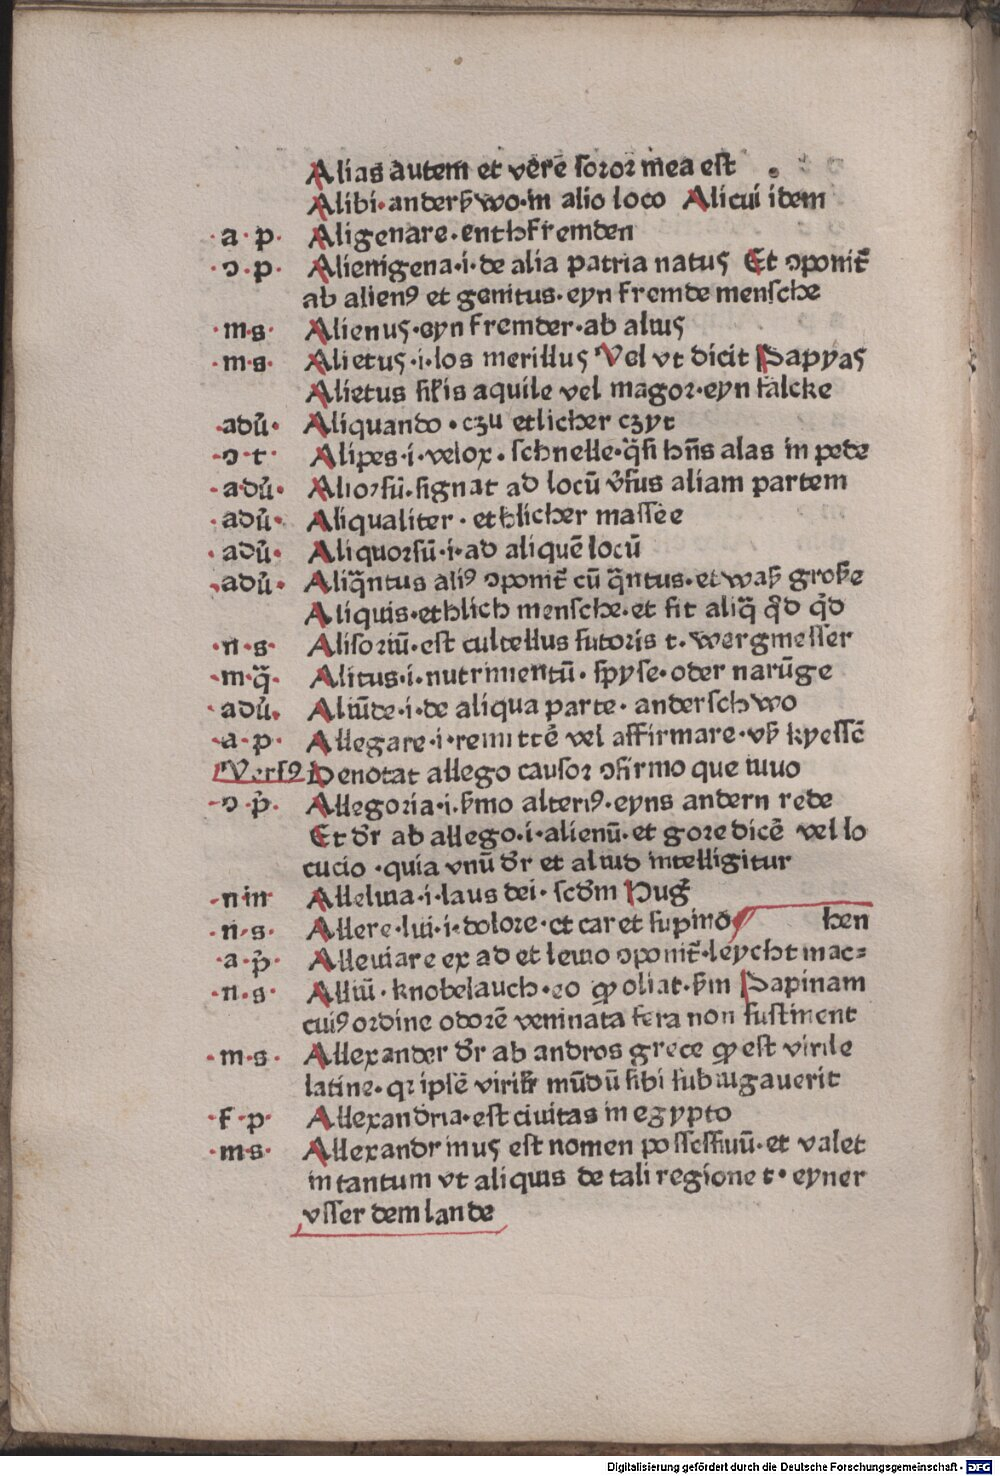 Alias autem et verē soror mea est
Alibi·anderßwo·in alio loco Alicui idem
·a·p· Aligenare·enthfremden
·ↄ·p· Alienigena·i·de alia patria natus Et ↄponit̄
ab alienꝰ et genitus·eyn fremde mensche
·m·s· Alienus·eyn fremder·ab alius
·m·s· Alietus·i·los merillus Vel vt dicit Papyas
Alietus sil̄is aquile vel magor·eyn falcke
·adū· Aliquando·czu etlicher czyt
·ↄ·t· Alipes·i·velox·schnelle·q̄si hn̄s alas in pede
·adū· Aliorsū·signat ad locū v̄sus aliam partem
·adū· Aliqualiter·ethlicher masse
·adū· Aliquorsū·i·ad aliquē locū
·adū· Aliq̄ntus aliꝰ ↄponit̄ cū q̄ntus·etwaß große
Aliquis·ethlich mensche·et fit aliq̄ qd̄ qd̄
·n·s· Alisoriū·est cultellus sutoris t·wergmesser
·m·q̄· Alitus·i·nutrimentū·spyse·oder narūge
·adū· Aliūde·i·de aliqua parte·anderschwo
·a·p· Allegare·i·remittē vel affirmare·vß kyessē
Versꝰ Denotat allego causor ↄfirmo que iuuo
·ↄ·p̄· Allegoria·i·s̄mo alteriꝰ·eyns andern rede
Et dr̄ ab allego·i·alienū·et gore dicē vel lo
cucio·quia vnū dr̄ et aliud intelligitur
·nin· Alleluia·i·laus dei·scd̄m Huḡ
·n·s· Allere·lui·i·dolore·et caret supino hen
·a·p̄· Alleuiare ex ad et leuio ↄponit̄·leycht mac-
·n·s· Alliū·knobelauch·eo ꝙ oliat·s̄m Papinam
cuiꝰ ordine odorē veninata fera non sustinent
·m·s· Allexander dr̄ ab andros grece ꝙ est virile
latine·qr ipsē virilit̄ mūdū sibi subiugauerit
·f·p· Allexandria·est ciuitas in egypto
·m·s· Allexandrinus est nomen possessiuū·et valet
in tantum vt aliquis de tali regione t·eyner
vsser dem lande
Digitalisierung gefördert durch die Deutsche Forschungsgemeinschaft - DFG